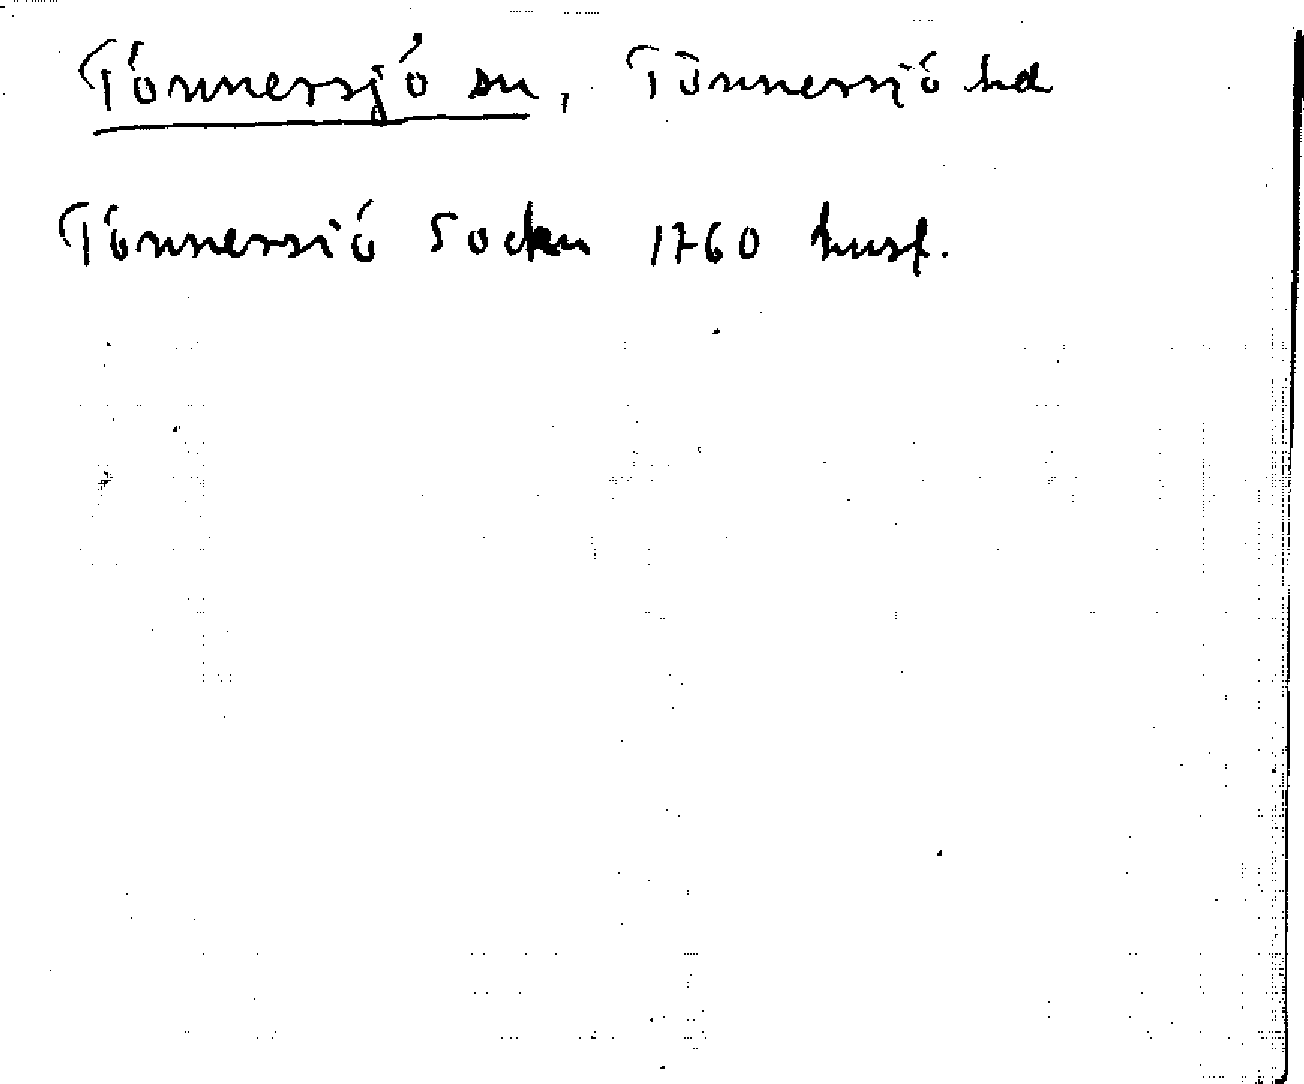 Tönnersjö sn, Tönnersjö hd
Tönnersiö Socken 1760 husf.